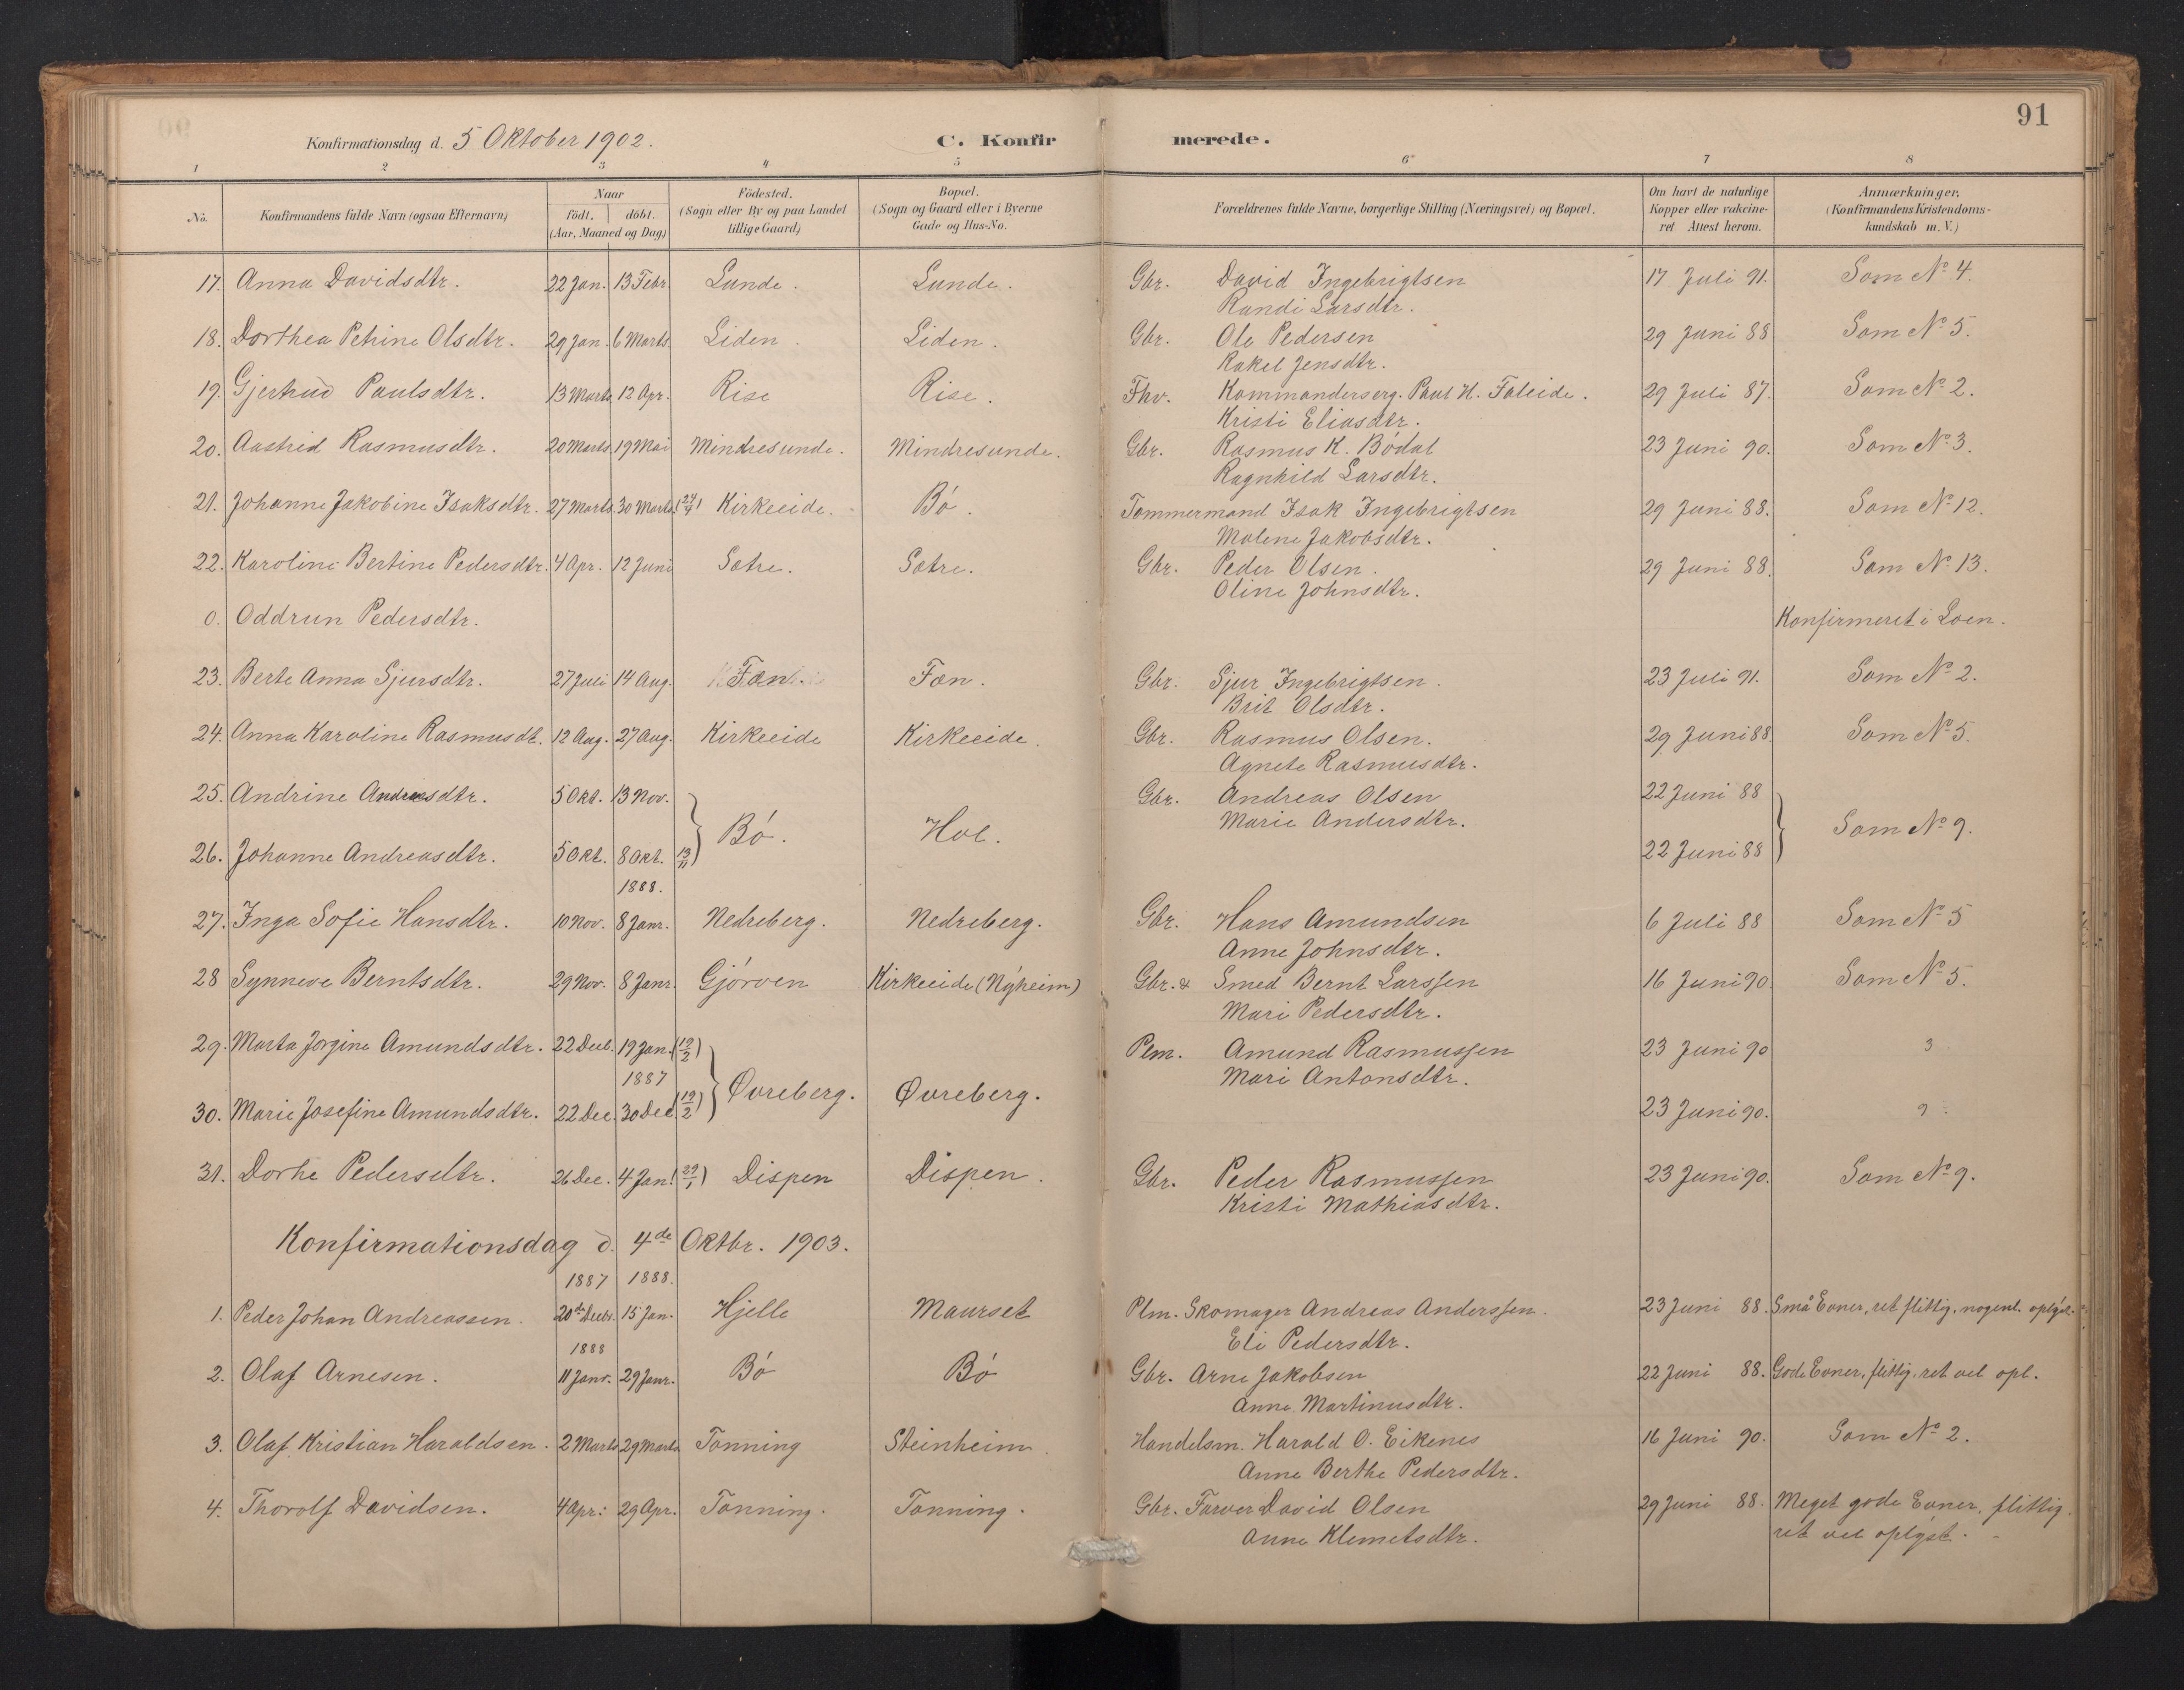 91
Konfirmationsdag d. 5 Oktober 1902. C. Konfir merede.
1 2 3 4 5 6 7 8
No. Konfirmandens fulde Navn (ogsaa Efternavn) Naar født. døbt. (Aar, Maaned og Dag) Fødested. (Sogn eller By og paa Landet tillige Gaard) Bopæl. (Sogn og Gaard eller i Byerne Gade og Hus-No. Forældrenes fulde Navne, borgerlige Stilling (Næringsvei) og Bopæl. Om havt de naturlige Kopper eller vakcineret Attest herom. Anmærkninger. (Konfirmandens Kristendomskundskab m.V.)
17. Anna Davidsdtr. 22 Jan. 13 Febr. Lunde. Lunde. Gbr. David Ingebrigtsen 17 Juli 91. Som No 4.
Randi Larsdtr.
18. Dorthea Petrine Olsdtr. 29 Jan. 6 Marts Liden. Liden. Gbr. Ole Pedersen 29 Juni 88 Som No 5.
Rakel Jensdtr.
19. Gjertrud Paulsdtr. 13 Marts 12 Apr. Rise Rise. Fhv. Kommanderserg. Paul H. Faleide. 29 Juli 87. Som No 2.
Kristi Eliasdtr.
20. Aastrid Rasmusdtr. 20 Marts 19 Mai Mindresunde. Mindresunde. Gbr. Rasmus K. Bødal 23 Juni 90. Som No 3.
Ragnhild Larsdtr.
21. Johanne Jakobine Isaksdtr. 27 Marts 30 Marts (24/4) Kirkeeide. Bø. Tømmermand Isak Ingebrigtsen 29 Juni 88. Som No 12.
Malene Jakobsdtr.
22. Karoline Bertine Pedersdtr. 4 Apr. 12 Juni Sætre. Sætre. Gbr. Peder Olsen. 29 Juni 88. Som No 13.
Oline Johnsdtr.
0. Oddrun Pedersdtr. Konfirmeret i Loen.
23. Berte Anna Sjursdtr. 27 Juli 14 Aug. Fæn. Fæn. Gbr. Sjur Ingebrigtsen. 23 Juli 91. Som No 2.
Brit Olsdtr.
24. Anna Karoline Rasmusdt. 12 Aug. 27 Aug. Kirkeeide Kirkeeide. Gbr. Rasmus Olsen. 29 Juni 88. Som No 5.
Agnete Rasmusdtr.
25. Andrine Andreasdtr. 5 Okt. 13 Nov. Gbr. Andreas Olsen 22 Juni 88
Bø. Hol. Marie Andersdtr. Som No 9.
26. Johanne Andreasdtr. 5 Okt. 8 Okt. (13/11) 22 Juni 88
1888.
27. Inga Sofie Hansdtr. 10 Nov. 8 Janr. Nedreberg. Nedreberg. Gbr. Hans Amundsen 6 Juli 88 Som No 5
Anne Johnsdtr.
28 Synneve Berntsdtr. 29 Nov. 8 Janr. Gjørven Kirkeeide (Nyheim) Gbr. & Smed Bernt Larssen 16 Juni 90. Som No 5.
Mari Pedersdtr.
29. Marta Jørgine Amundsdtr. 22 Decb. 19 Jan. (12/2) Plm. Amund Rasmussen 23 Juni 90 3
1887 Øvreberg. Øvreberg. Mari Antonsdtr.
30. Marie Josefine Amundsdtr. 22 Dec. 30 Dec (12/2) 23 Juni 90. 9.
31. Dorthe Pedersdtr. 26 Dec. 4 Jan. (29/1) Dispen Dispen. Gbr. Peder Rasmussen 23 Juni 90. Som No 9.
Kristi Mathiasdtr.
Konfirmationsdag d. 4de Oktbr. 1903.
1887 1888.
1. Peder Johan Andreassen. 20de Decbr. 15 Jan. Hjelle Maurset Plm. Skomager Andreas Anderssen. 23 Juni 88. Små Evner, ret flittig, nogenl. oplyst.
1888 Eli Pedersdtr.
2. Olaf Arnesen. 11 Janr. 29 Janr. Bø Bø Gbr. Arne Jakobsen 22 Juni 88. Gode Evner, flittig, ret vel opl.
Anne Martinusdtr.
3. Olaf Kristian Haraldsen. 2 Marts 29 Marts Tonning Steinheim. Handelsm. Harald O. Eikenes 16 Juni 90. Som No 2.
Anne Berthe Pedersdtr.
4. Thorolf Davidsen. 4 Apr. 29 Apr. Tonning. Tonning. Gbr. Farver David Olsen 29 Juni 88. Meget gode Evner, flittig.
Anne Klemetsdtr. ret vel oplyst.